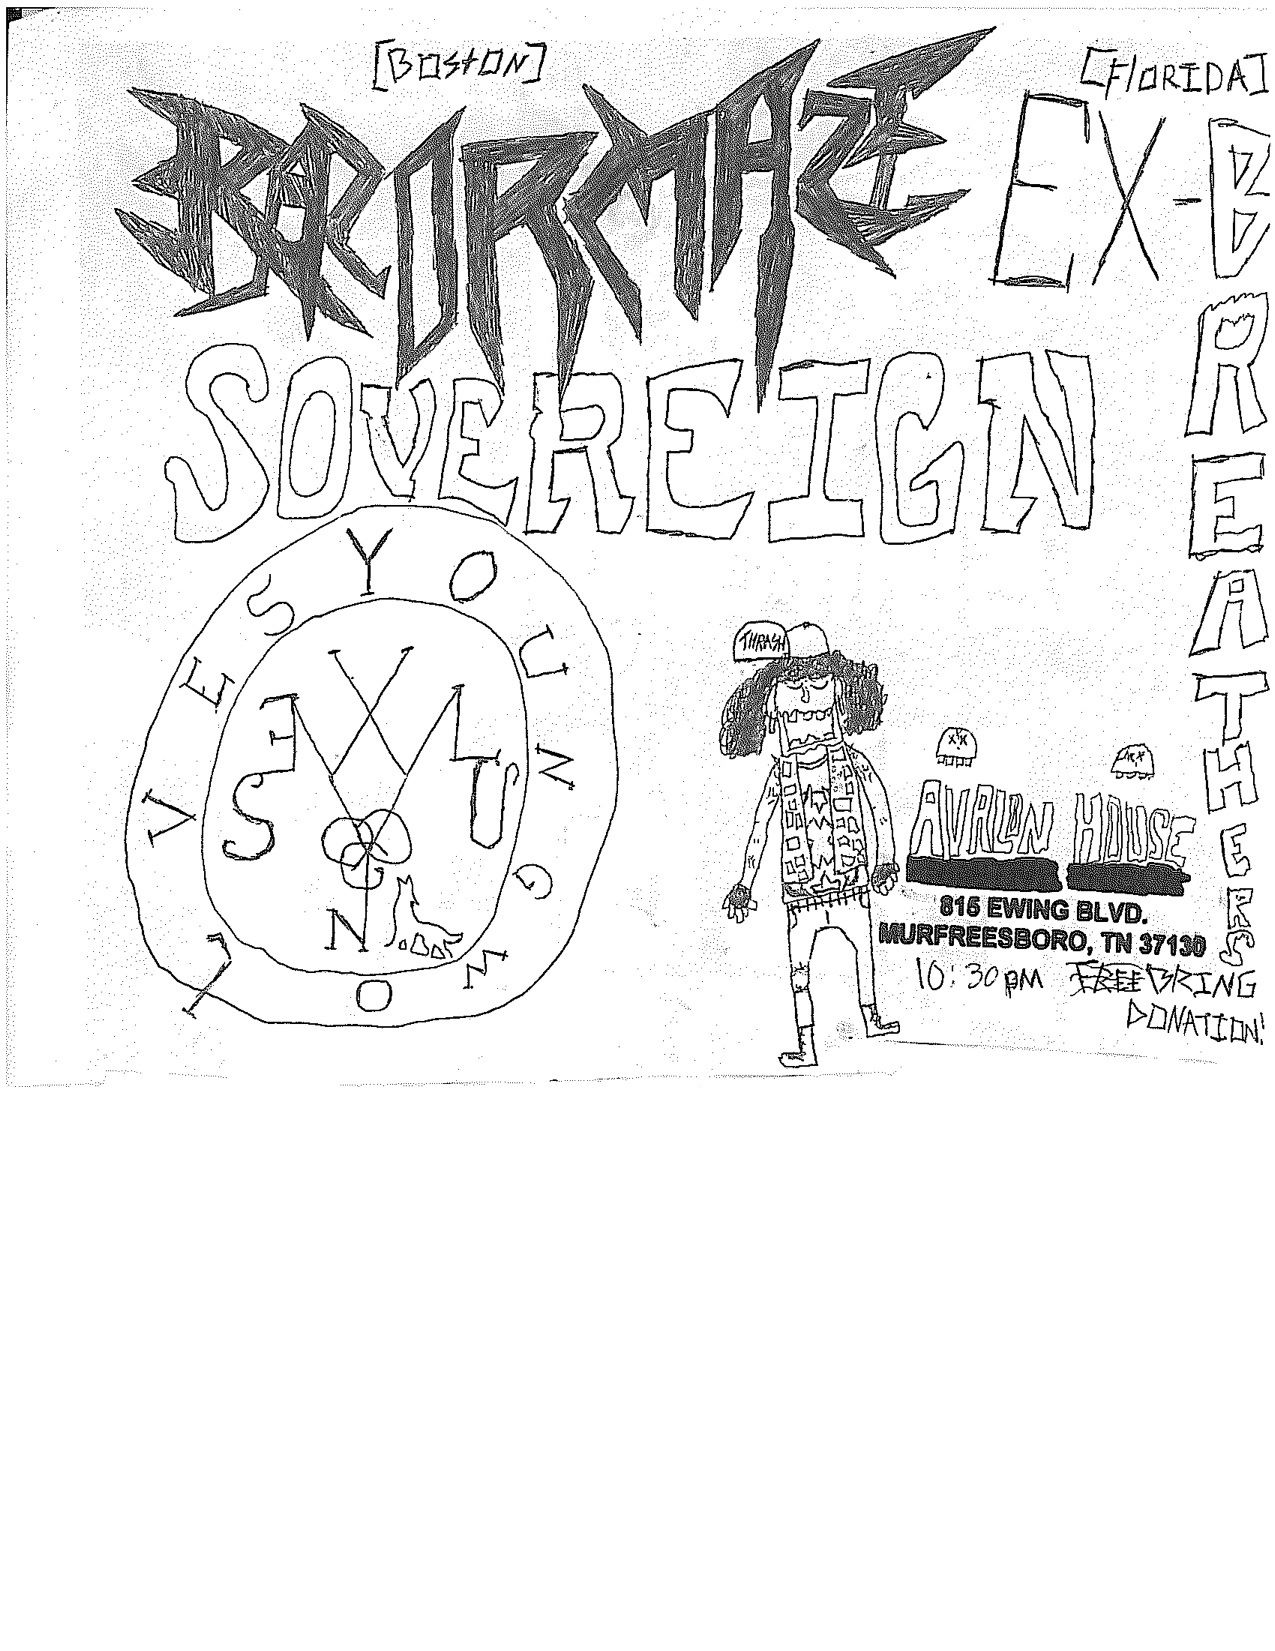 [BOSTON]
RAZORMAZE
[FLORIDA]
EX-BREATHERS
SOVEREIGN
YOUNG WOLVES
THRASH
AVALON HOUSE
815 EWING BLVD.
MURFREESBORO, TN 37130
10:30PM FREE BRING
DONATION!